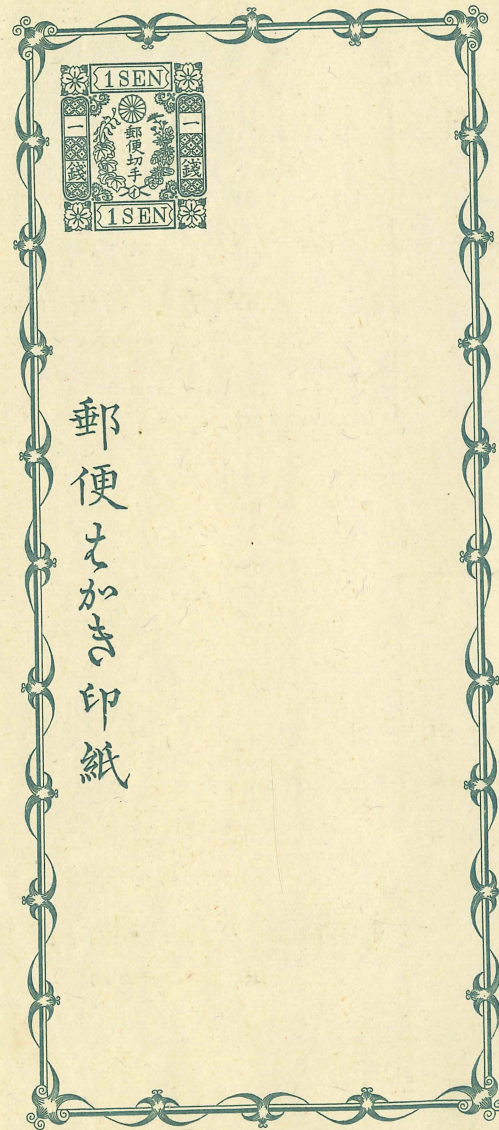 1 SEN
一銭
郵便切手
イ
一銭
1 SEN
郵便はがき印紙